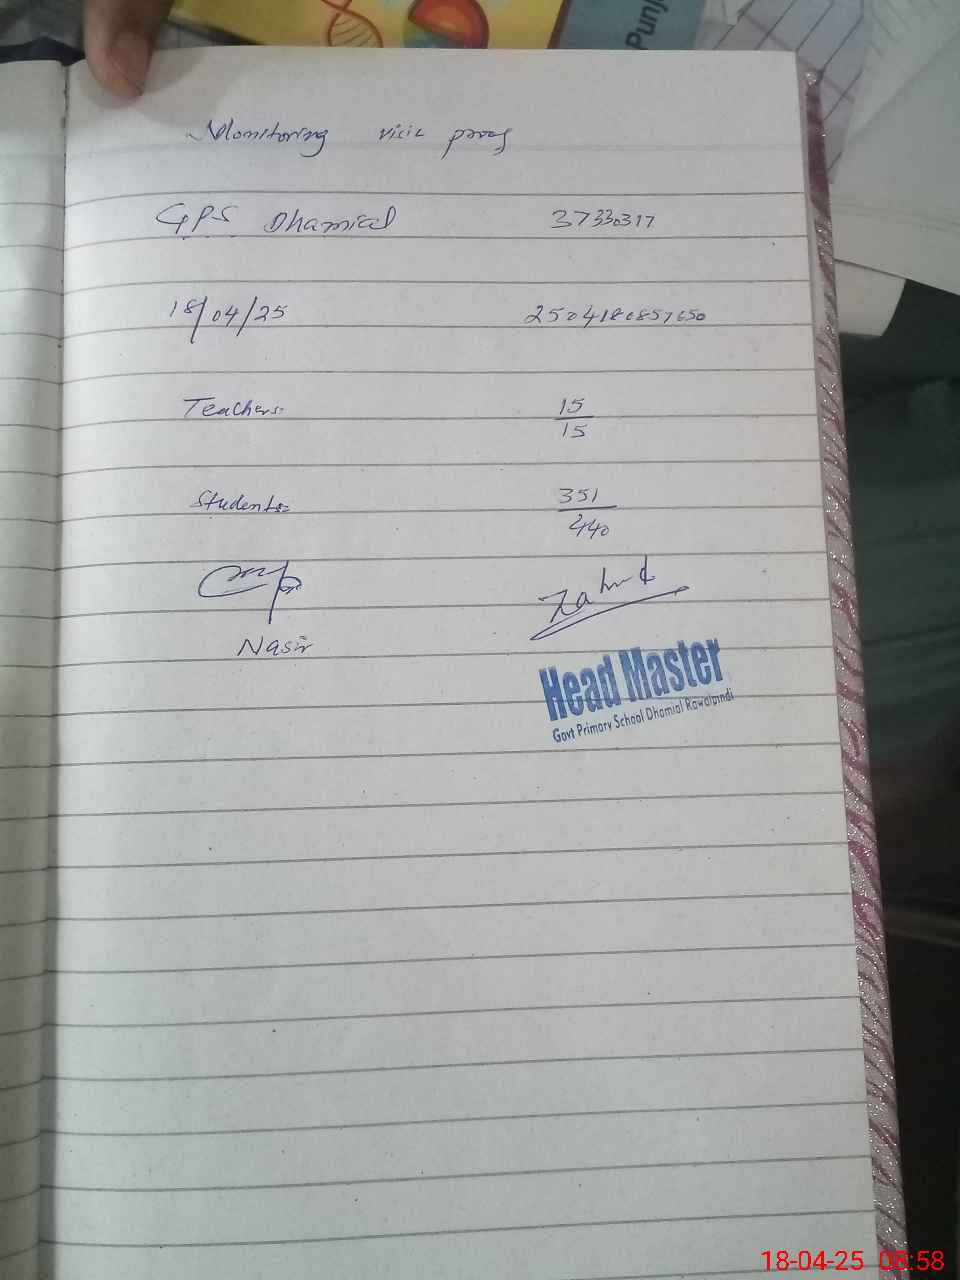 Punj
Monitoring visit proof
GPS Dhamial 37330317
18/04/25 2504180857650
Teachers: 15/15
Students: 351/440
Nasir
Head Master
Govt Primary School Dhamial Rawalpindi
18-04-25 08:58